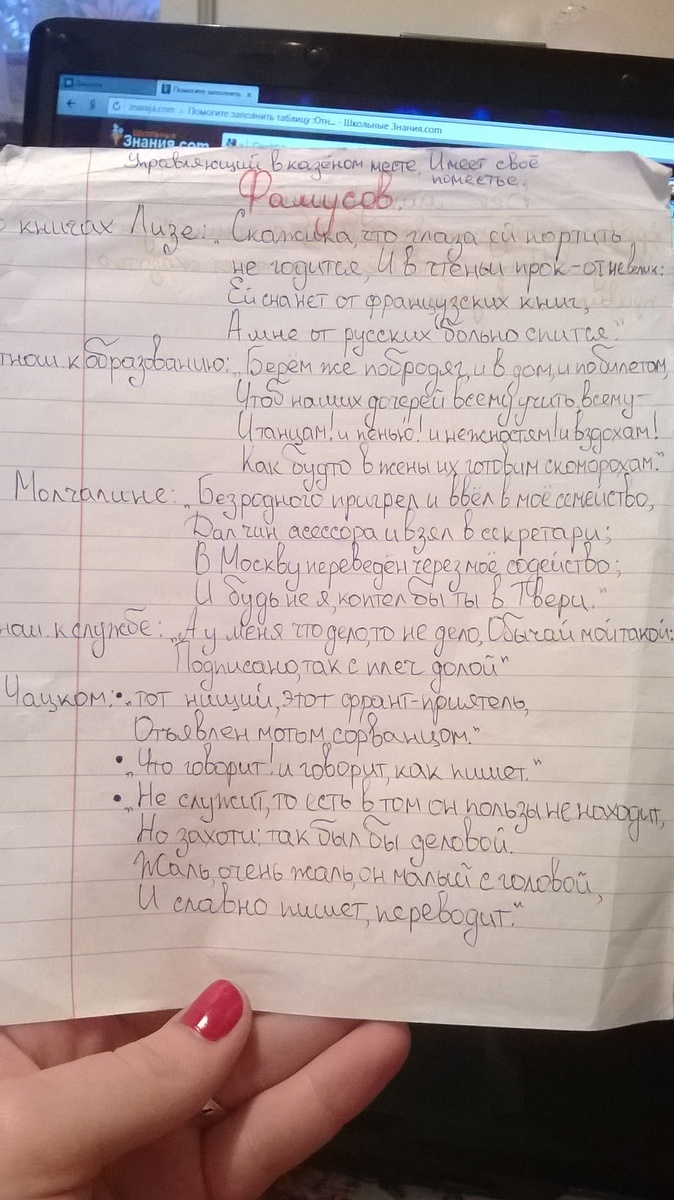 Помогите заполнить
znanija.com › Помогите заполнить таблицу :Отн... - Школьные Знания.com
Школьные
Знания.com
Управляющий в казёном месте. Имеет своё
поместье.
Фамусов.
о книгах Лизе: „Скажи-ка, что глаза ей портить
не годится, И в чтеньи прок-от невелик:
Ей сна нет от французских книг,
А мне от русских больно спится."
тнош к образованию: „Берём же побродяг, и в дом, и по билетам,
Чтоб наших дочерей всему учить, всему-
И танцам! и пенью! и нежностям! и вздохам!
Как будто в жены их готовим скоморохам."
Молчалине: „Безродного пригрел и ввёл в моё семейство,
Дал чин асессора и взял в секретари;
В Москву переведён через моё содейство;
И будь не я, коптел бы ты в Твери."
нош к службе: „А у меня что дело, то не дело, Обычай мой такой:
Подписано, так с плеч долой"
Чацком: • „тот нищий, этот франт-приятель,
Отъявлен мотом, сорванцом."
• „Что говорит! и говорит, как пишет."
• „Не служит, то есть в том он пользы не находит,
Но захоти: так был бы деловой.
Жаль, очень жаль, он малый с головой,
И славно пишет, переводит."